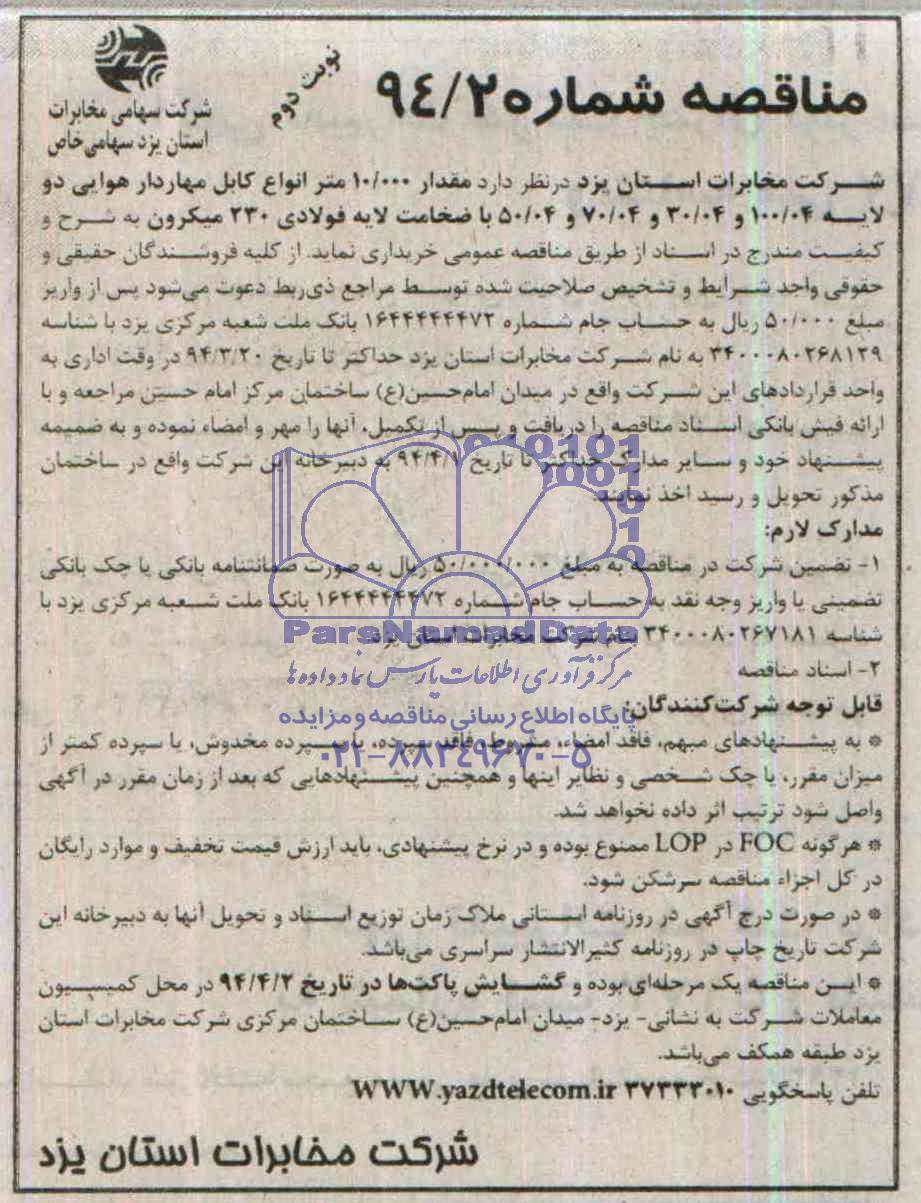 مناقصه شماره ۹٤/۲
نوبت دوم
شرکت سهامی مخابرات
استان یزد سهامی خاص
شرکت مخابرات استان یزد درنظر دارد مقدار ۱۰/۰۰۰ متر انواع کابل مهاردار هوایی دو
لایه ۱۰۰/۰۴ و ۳۰/۰۴ و ۷۰/۰۴ و ۵۰/۰۴ با ضخامت لایه فولادی ۲۳۰ میکرون به شرح و
کیفیت مندرج در اسناد از طریق مناقصه عمومی خریداری نماید. از کلیه فروشندگان حقیقی و
حقوقی واجد شرایط و تشخیص صلاحیت شده توسط مراجع ذی‌ربط دعوت می‌شود پس از واریز
مبلغ ۵۰/۰۰۰ ریال به حساب جام شماره ۱۶۴۴۴۴۴۴۷۲ بانک ملت شعبه مرکزی یزد با شناسه
۳۴۰۰۰۸۰۲۶۸۱۲۹ به نام شرکت مخابرات استان یزد حداکثر تا تاریخ ۹۴/۳/۲۰ در وقت اداری به
واحد قراردادهای این شرکت واقع در میدان امام‌حسین(ع) ساختمان مرکز امام حسین مراجعه و با
ارائه فیش بانکی اسناد مناقصه را دریافت و پس از تکمیل، آنها را مهر و امضاء نموده و به ضمیمه
پیشنهاد خود و سایر مدارک حداکثر تا تاریخ ۹۴/۴/۱ به دبیرخانه این شرکت واقع در ساختمان
مذکور تحویل و رسید اخذ نمایند.
مدارک لازم:
۱- تضمین شرکت در مناقصه به مبلغ ۵۰/۰۰۰/۰۰۰ ریال به صورت ضمانتنامه بانکی یا چک بانکی
تضمینی یا واریز وجه نقد به حساب جام شماره ۱۶۴۴۴۴۴۴۷۲ بانک ملت شعبه مرکزی یزد با
شناسه ۳۴۰۰۰۸۰۲۶۷۱۸۱ بنام شرکت مخابرات استان یزد.
ParsNamadData
۲- اسناد مناقصه
مرکز فرآوری اطلاعات پارس نماد داده ها
قابل توجه شرکت‌کنندگان:
پایگاه اطلاع رسانی مناقصه و مزایده
* به پیشنهادهای مبهم، فاقد امضاء، مشروط، فاقد سپرده، یا سپرده مخدوش، یا سپرده کمتر از
۰۲۱-۸۸۳٤۹۶۷۰-۵
میزان مقرر، یا چک شخصی و نظایر اینها و همچنین پیشنهادهایی که بعد از زمان مقرر در آگهی
واصل شود ترتیب اثر داده نخواهد شد.
* هرگونه FOC در LOP ممنوع بوده و در نرخ پیشنهادی، باید ارزش قیمت تخفیف و موارد رایگان
در کل اجزاء مناقصه سرشکن شود.
* در صورت درج آگهی در روزنامه استانی ملاک زمان توزیع اسناد و تحویل آنها به دبیرخانه این
شرکت تاریخ چاپ در روزنامه کثیرالانتشار سراسری می‌باشد.
* این مناقصه یک مرحله‌ای بوده و گشایش پاکت‌ها در تاریخ ۹۴/۴/۲ در محل کمیسیون
معاملات شرکت به نشانی- یزد- میدان امام‌حسین(ع) ساختمان مرکزی شرکت مخابرات استان
یزد طبقه همکف می‌باشد.
تلفن پاسخگویی ۳۷۲۳۳۰۱۰ WWW.yazdtelecom.ir
شرکت مخابرات استان یزد